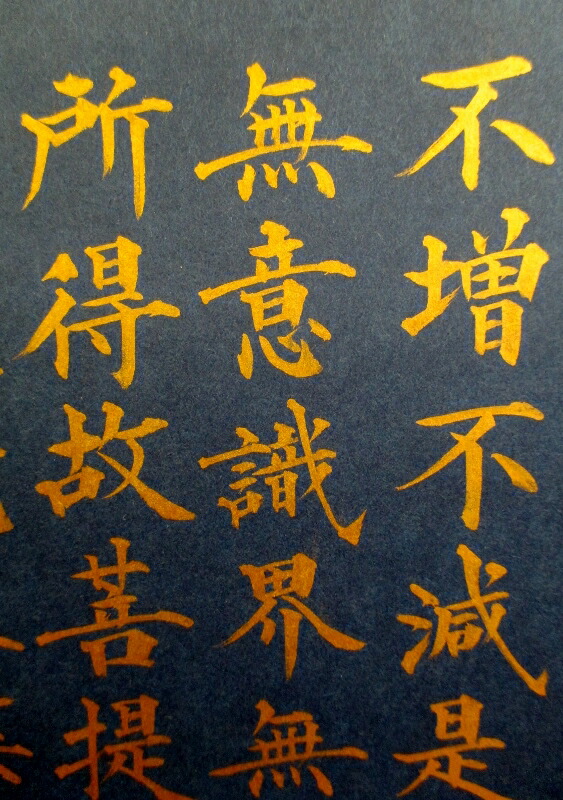 不增不減是
無意識界無
所得故菩提